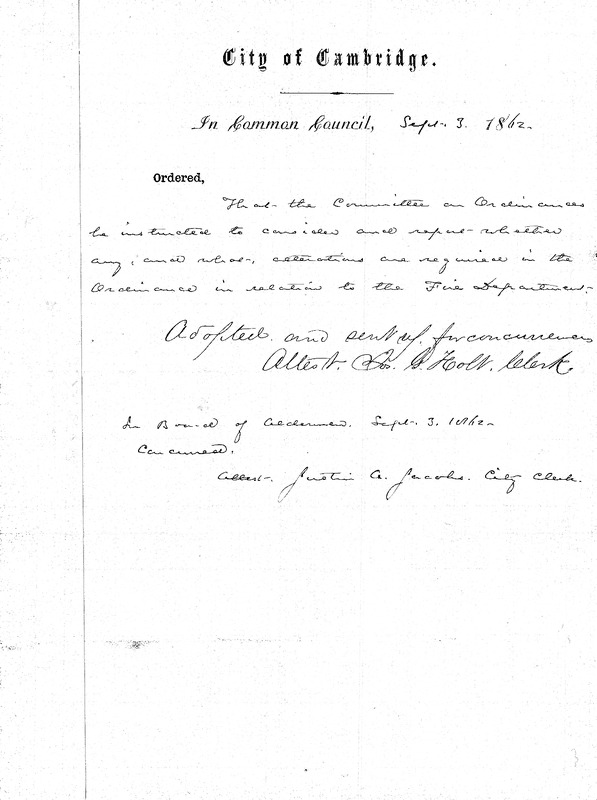 City of Cambridge.
In Common Council, Sept. 3. 1862.
Ordered,
That the Committee on Ordinances
be instructed to consider and report whether
any, and what, alterations are required in the
Ordinance in relation to the Fire Department.
Adopted. and sent up. for concurrence
Attest. Jos. G. Holt. Clerk.
In Board of Aldermen. Sept. 3. 1862.
Concurred.
Attest. Justin A. Jacobs. City Clerk.